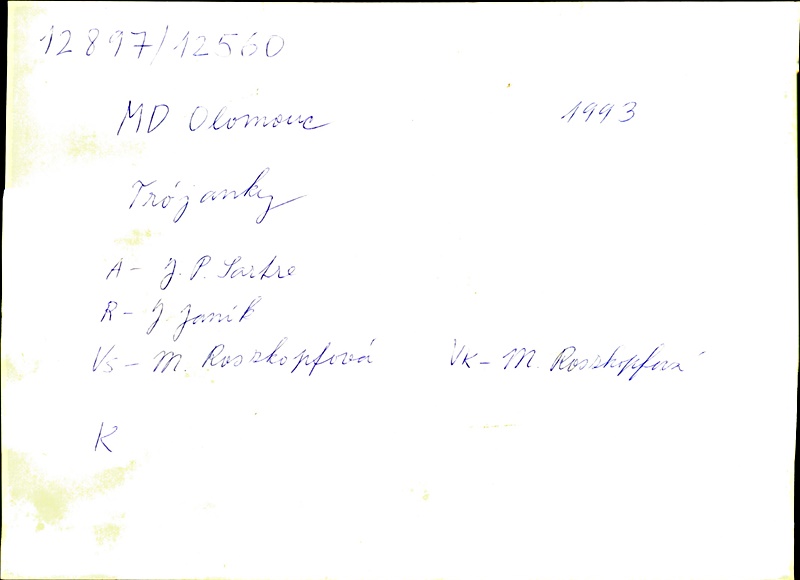 12897/12560
MD Olomouc 1993
Trójanky
A - J. P. Sartre
R - J. Janík
VS - M. Roszkopfová VK - M. Roszkopfová
K